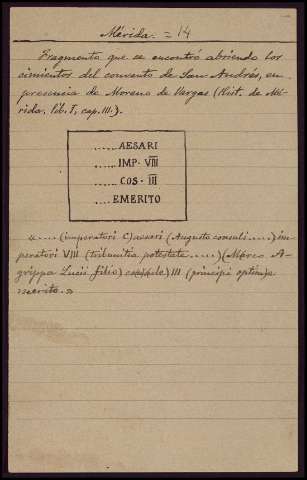 Mérida. = 14
Fragmento que se encontró abriendo los
cimientos del convento de San Andrés, en
presencia de Moreno de Vargas (Hist. de Mé-
rida, lib. I, cap. III.).
..... AESARI
..... IMP · VIII
..... COS · III
..... EMERITO
«.... (imperatori C)aesari (Augusto consuli .....) im-
peratori VIII (tribunitia potestate .....) (Marco A-
grippa Lucii filio) III (principi optim)o
merito.»